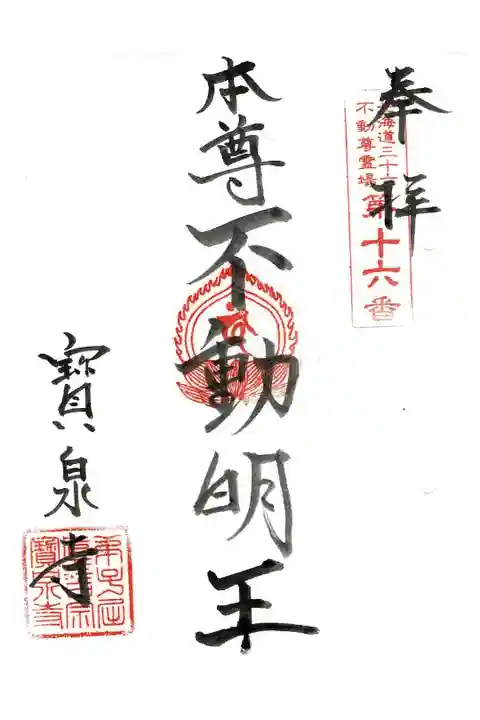 奉拝
海道三十六
不動尊霊場
第十六番
本尊不動明王
寶泉寺
寶泉寺